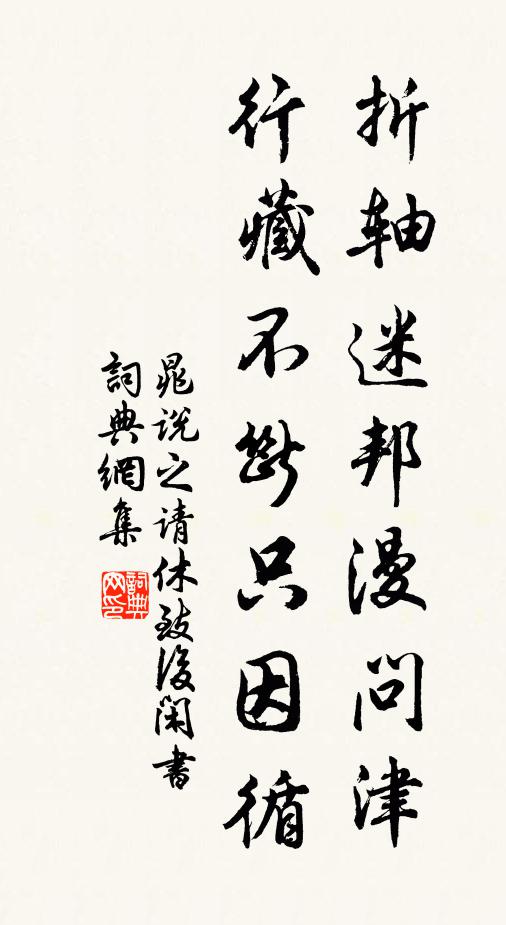 折轴迷邦漫问津
行藏不断只因循
晁说之请休致后闲书
词典网集
词典网印